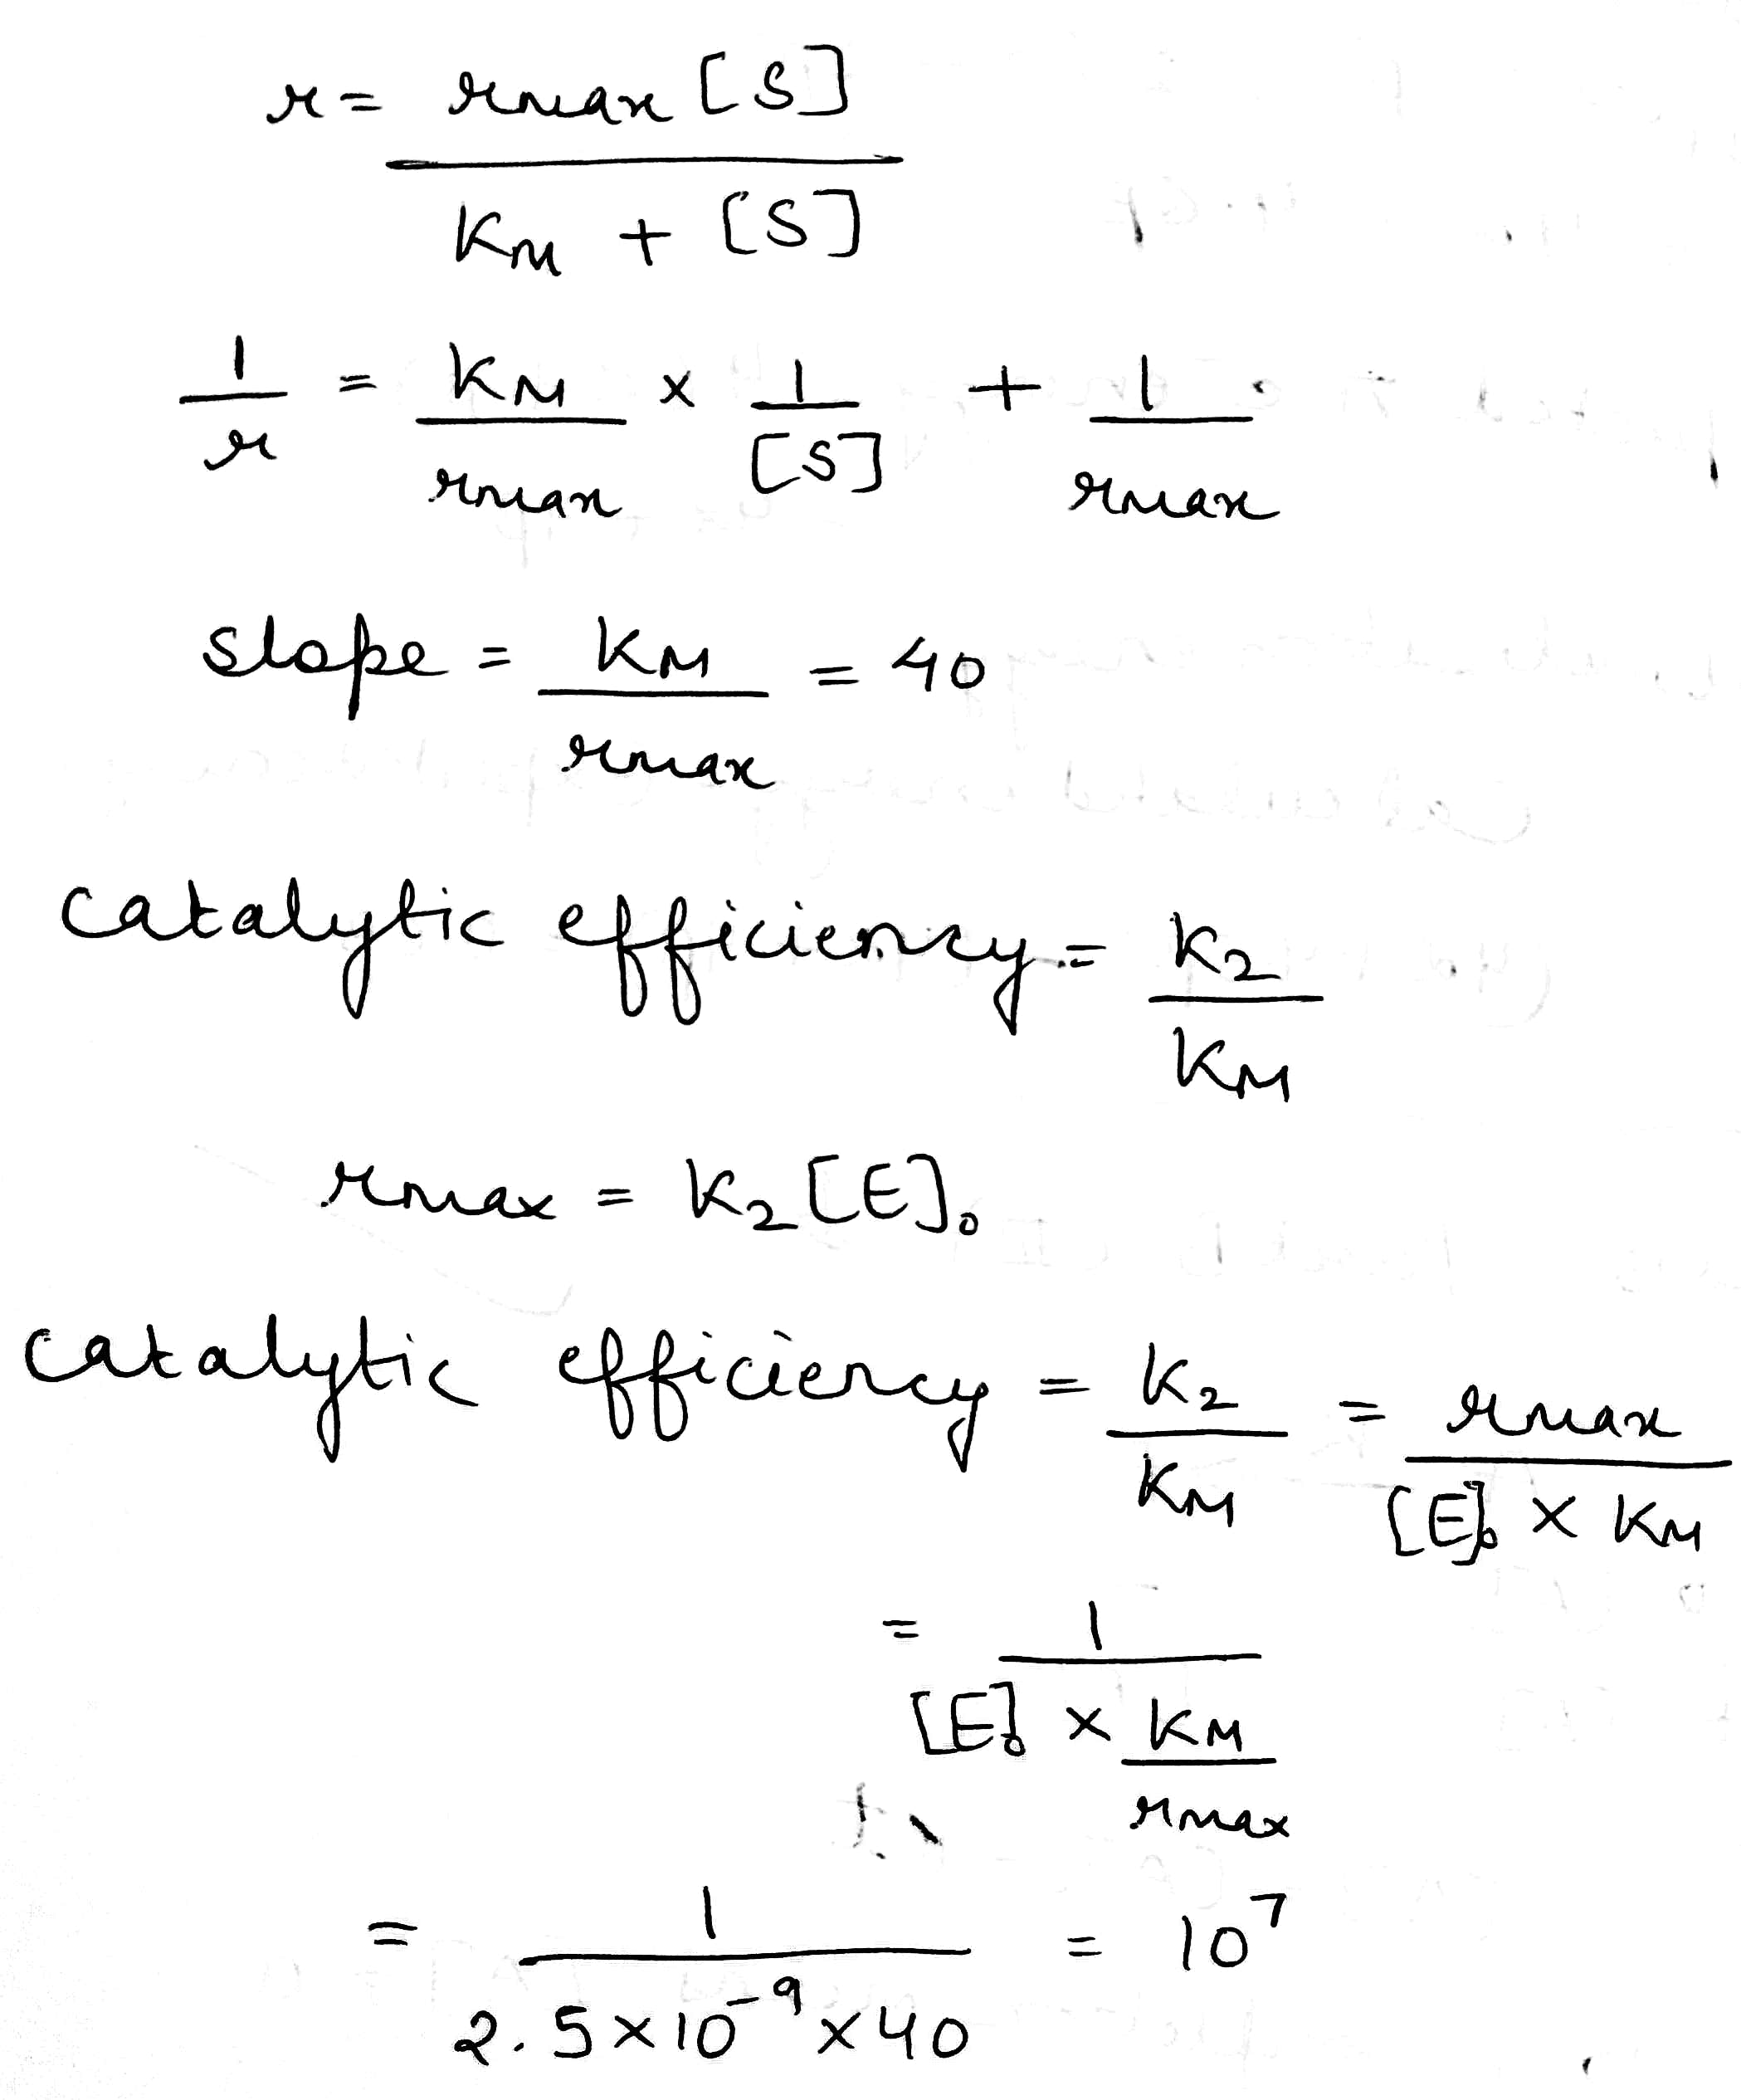 r = rmax [S]
KM + [S]
1 = KM × 1 + 1
r rmax [S] rmax
slope = KM = 40
rmax
catalytic efficiency = K2
KM
rmax = K2 [E]0
catalytic efficiency = K2 = rmax
KM [E]0 × KM
= 1
[E]0 × KM
rmax
= 1 = 10⁷
2.5 × 10⁻⁹ × 40